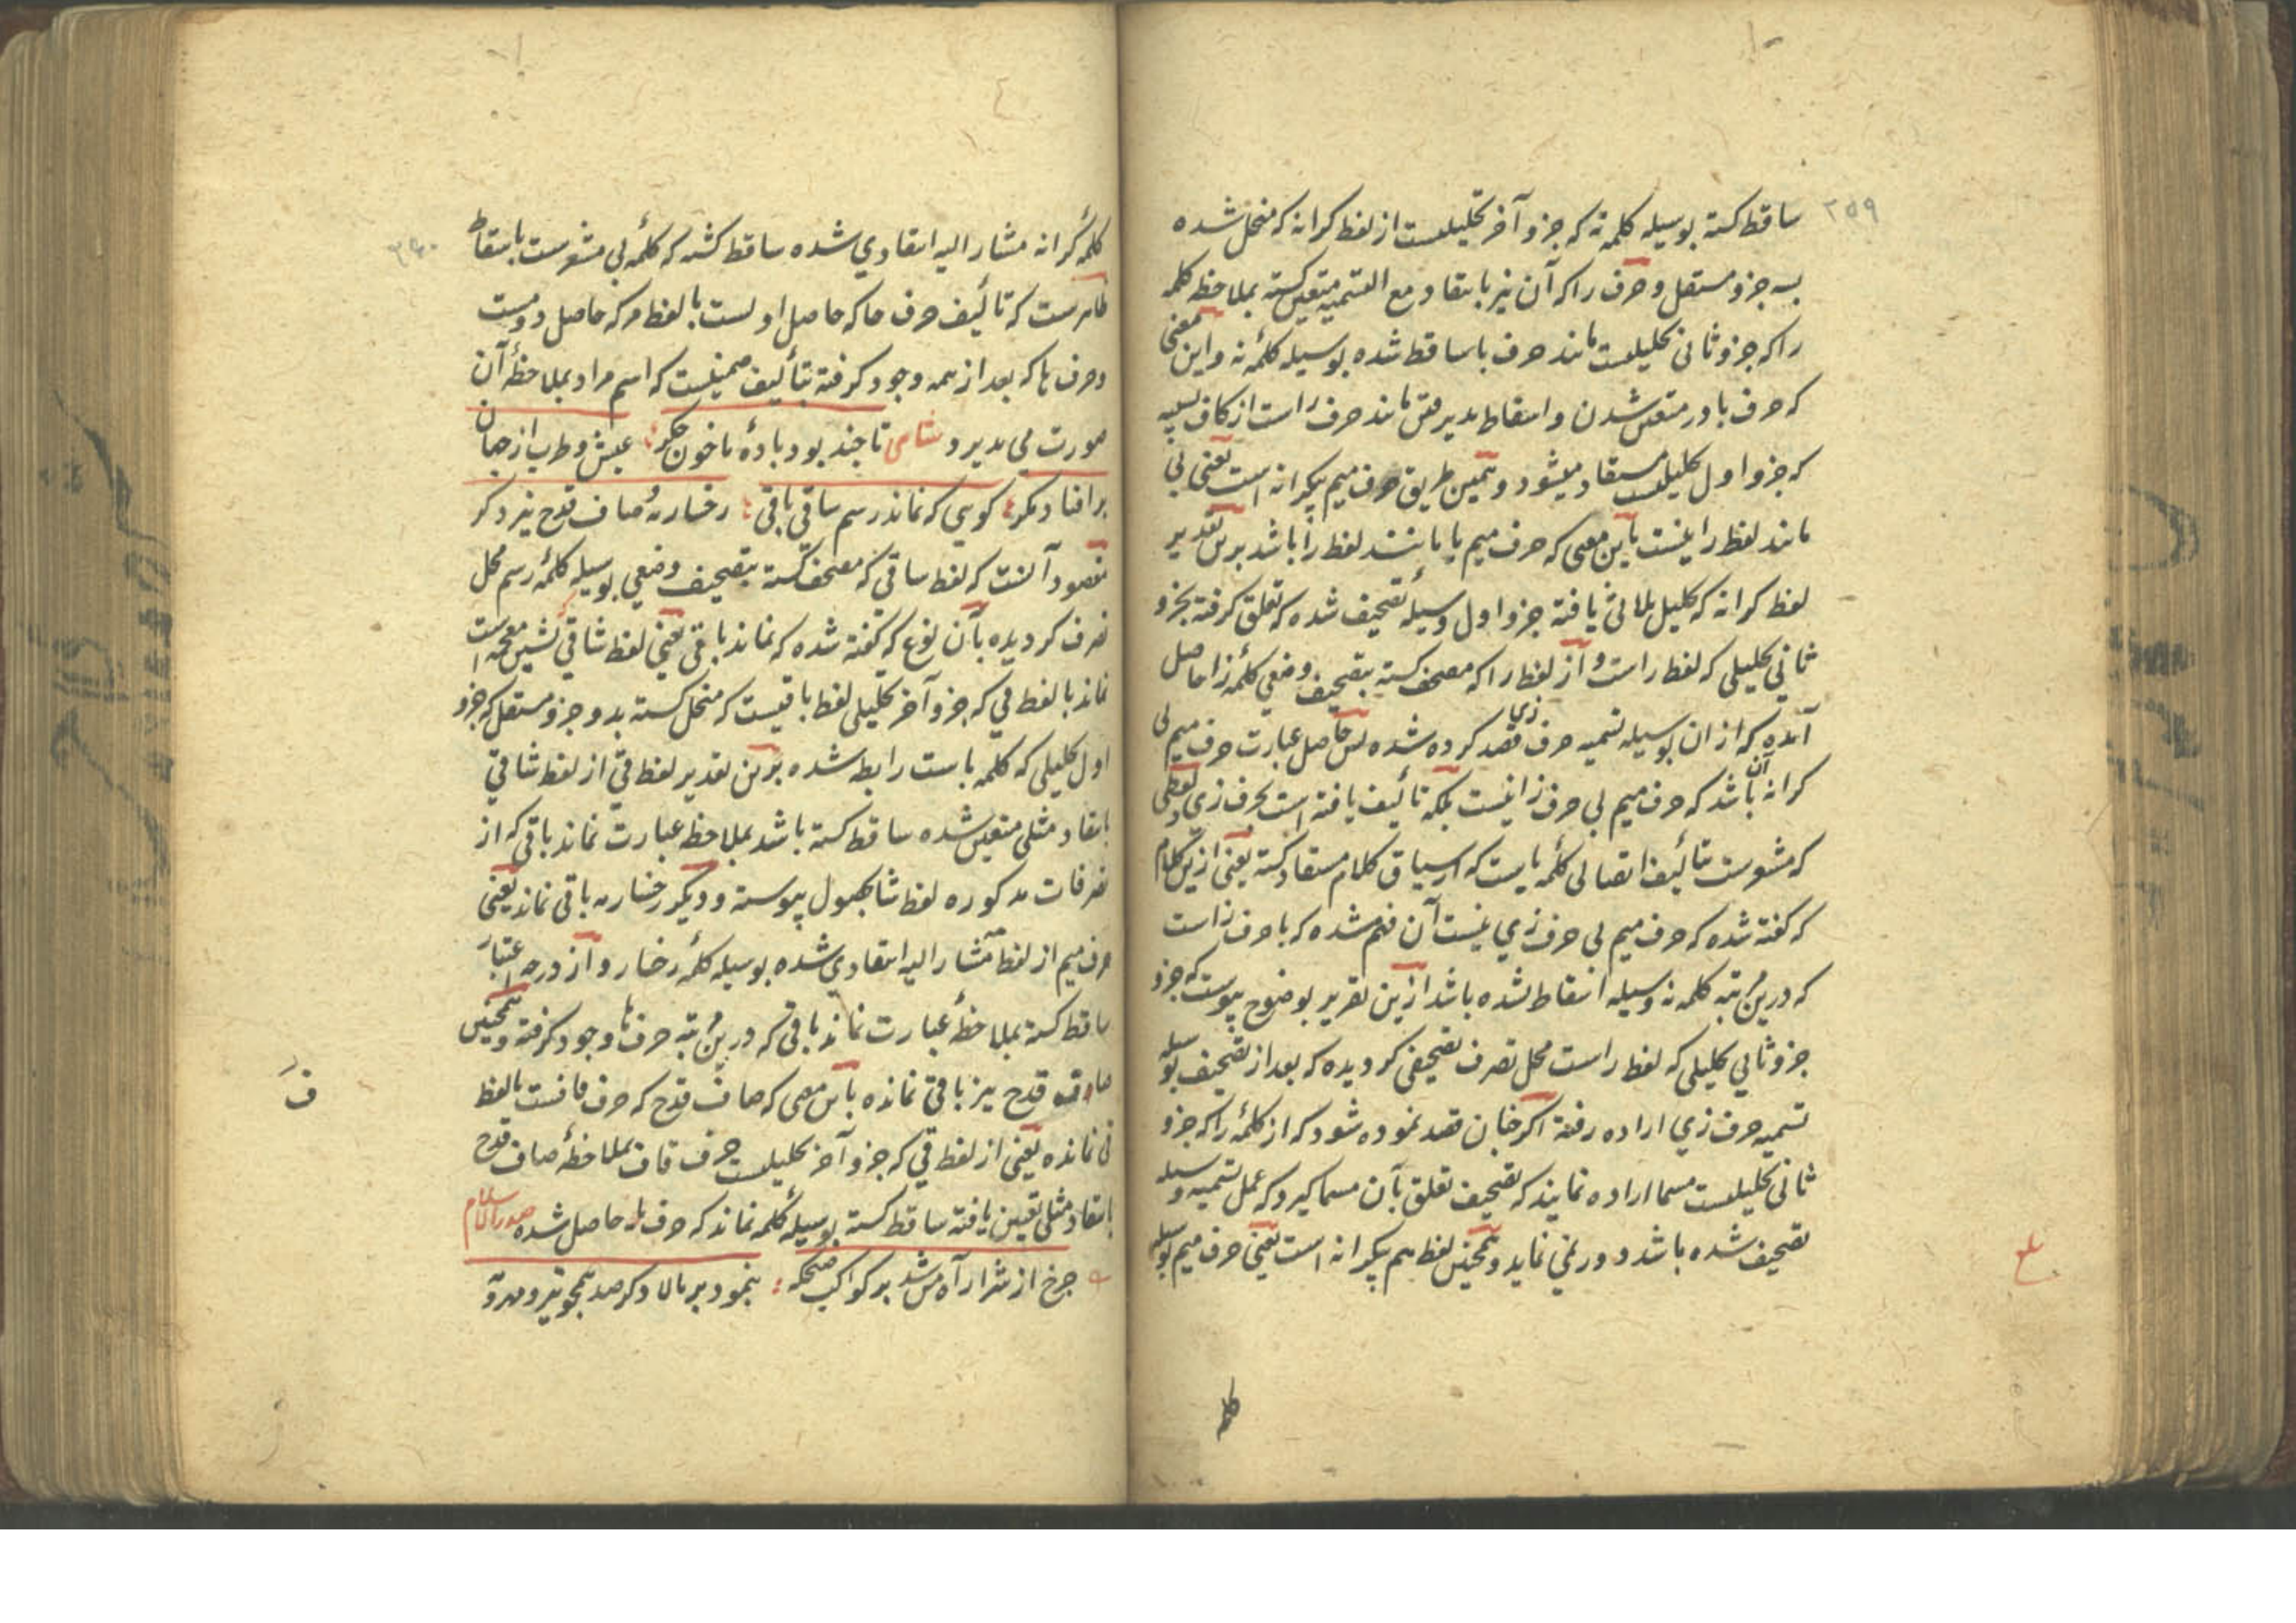 ۲۵۹
ساقط کشته بوسیله کلمه نه که جزو آخر تحلیلیست از لفظ کرانه که منحل شده
بسه جزو مستقل و حرف را که آن نیز بانتقاد مع التسمیه متعین کشته بملاحظه کلمه
را که جزو ثانی تحلیلیست مانند حرف با ساقط شده بوسیله کلمه نه و این معنی
که حرف با در متعین شدن و اسقاط پذیرفتن مانند حرف راست از کاف
که جزو اول تحلیلیست مستفاد میشود و بهمین طریق حرف میم بکرانه است یعنی بی
مانند لفظ را نیست باین معنی که حرف میم با مانند لفظ را باشد برین تقدیر
لفظ کرانه که تحلیل ثلاثی یافته جزو اول وسیله تصحیف شده که تعلق کرفته بجزو
ثانی تحلیلی که لفظ راست و از لفظ را که مصحف کشته بتصحیف وضعی کلمه زا حاصل
آمده که از ان بوسیله تسمیه حرف زی قصد کرده شده پس حاصل عبارت حرف میم بی
کرانه آن باشد که حرف میم بی حرف زا نیست بلکه تألیف یافته است بحرف زی و لفظی
که مشعرست بتألیف اتصالی کلمه باست که از سیاق کلام مستفاد کشته یعنی ازین کلام
که گفته شده که حرف میم بی حرف زی نیست آن فهم شده که با حرف زاست
که درین مرتبه کلمه نه وسیله اسقاط نشده باشد ازین تقریر بوضوح پیوست که جزو
جزو ثانی تحلیلی که لفظ راست محل تصرف تصحیفی کردیده که بعد از تصحیف بوسیله
تسمیه حرف زی اراده رفته اکر چنان قصد نموده شود که از کلمه را که جزو
ثانی تحلیلیست مسما اراده نمایند که تصحیف تعلق بآن مسما کیرد که عمل تسمیه وسیله
تصحیف شده باشد دور نمی نماید و همچنین لفظ هم بکرانه است یعنی حرف میم بوسیله
کلمه
۲۶۰
کلمه کرانه مشار الیه انتقادی شده ساقط کشته که کلمه بی مشعرست باسقاط
ظاهرست که تألیف حرف حا که حاصل اولست با لفظ مر که حاصل دومست
و حرف ها که بعد از همه وجود کرفته بتألیف ضمنیست که اسم مراد بملاحظه آن
صورت می پذیرد تا چند بود باده ما خون جکر عیش و طرب از جهان
برافتاد مکر کوئی که نماند رسم ساقی باقی رخسار مه و صاف قدح نیز دکر
مقصود آنست که لفظ ساقی که مصحف کشته بتصحیف وضعی بوسیله کلمه رسم محل
تصرف کردیده بآن نوع که گفته شده که نماند باقی یعنی لفظ شاقی بشین معجمه است
نماند با لفظ قی که جزو آخر تحلیلی لفظ باقیست که منحل کشته بدو جزو مستقل که جزو
اول تحلیلی که کلمه باست رابطه شده برین تقدیر لفظ قی از لفظ شاقی
بانتقاد مثلی متعین شده ساقط کشته باشد بملاحظه عبارت نماند باقی که از
تصرفات مذکوره لفظ شا بحصول پیوسته و دیکر رخسار مه باقی نماند یعنی
حرف میم از لفظ مه مشار الیه انتقادی شده بوسیله کلمه رخسار و از درجه اعتبار
ساقط کشته بملاحظه عبارت نماند باقی که درین مرتبه حرف ها وجود کرفته و همچنین
صاف قدح نیز باقی نمانده باین معنی که صاف قدح که حرف قافست با لفظ
قی نمانده یعنی از لفظ قی که جزو آخر تحلیلیست حرف قاف بملاحظه صاف قدح
بانتقاد مثلی تعین یافته ساقط کشته بوسیله کلمه نماند که حرف یا حاصل شده صدر الاسلام
چرخ از شرار آه من شد بر کواکب بنمود بر بالا دکر صد همچو تیر و مه
ف